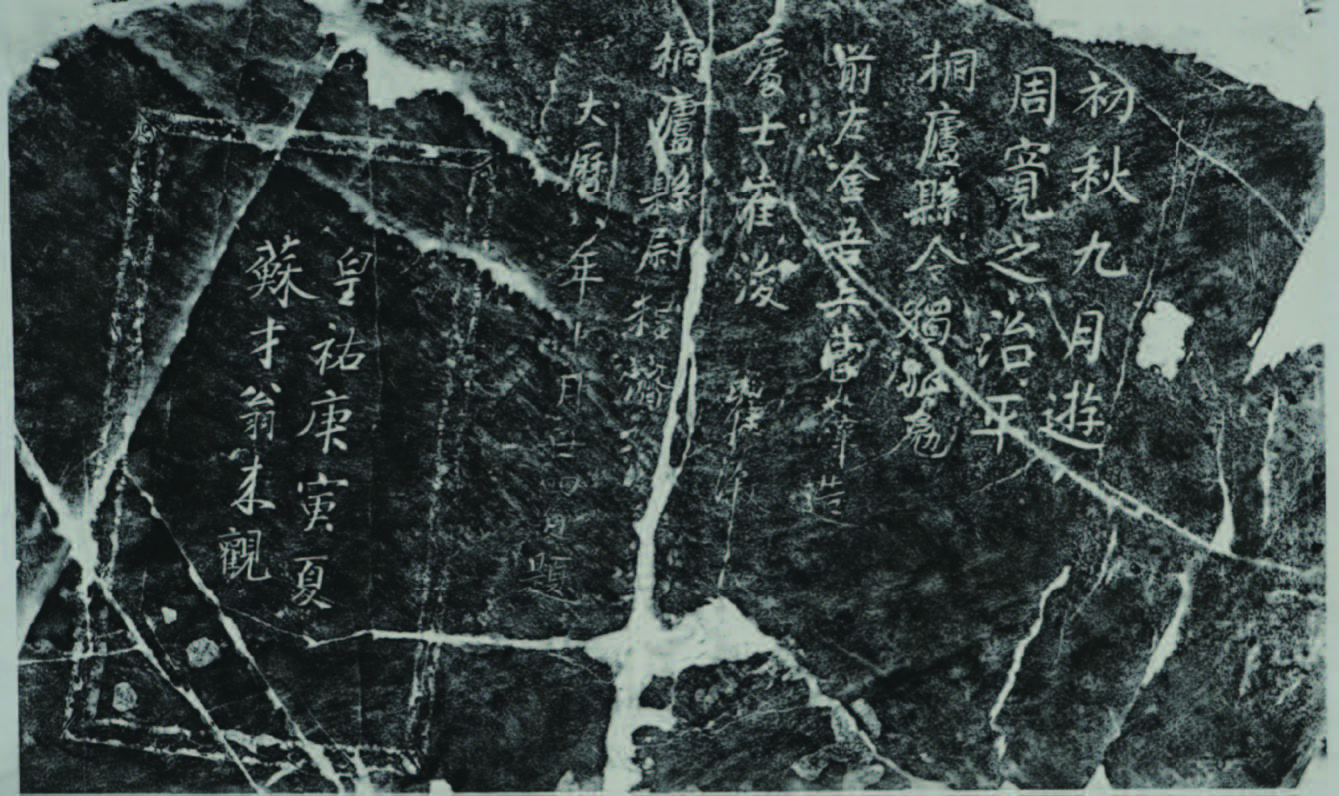 周寬之治平
初秋九月遊
桐廬縣令獨孤勉
前左金吾兵曹薛造
處士崔浚
桐廬縣尉 濟
大曆八年十月廿四日題
皇祐庚寅夏
蘇才翁來觀